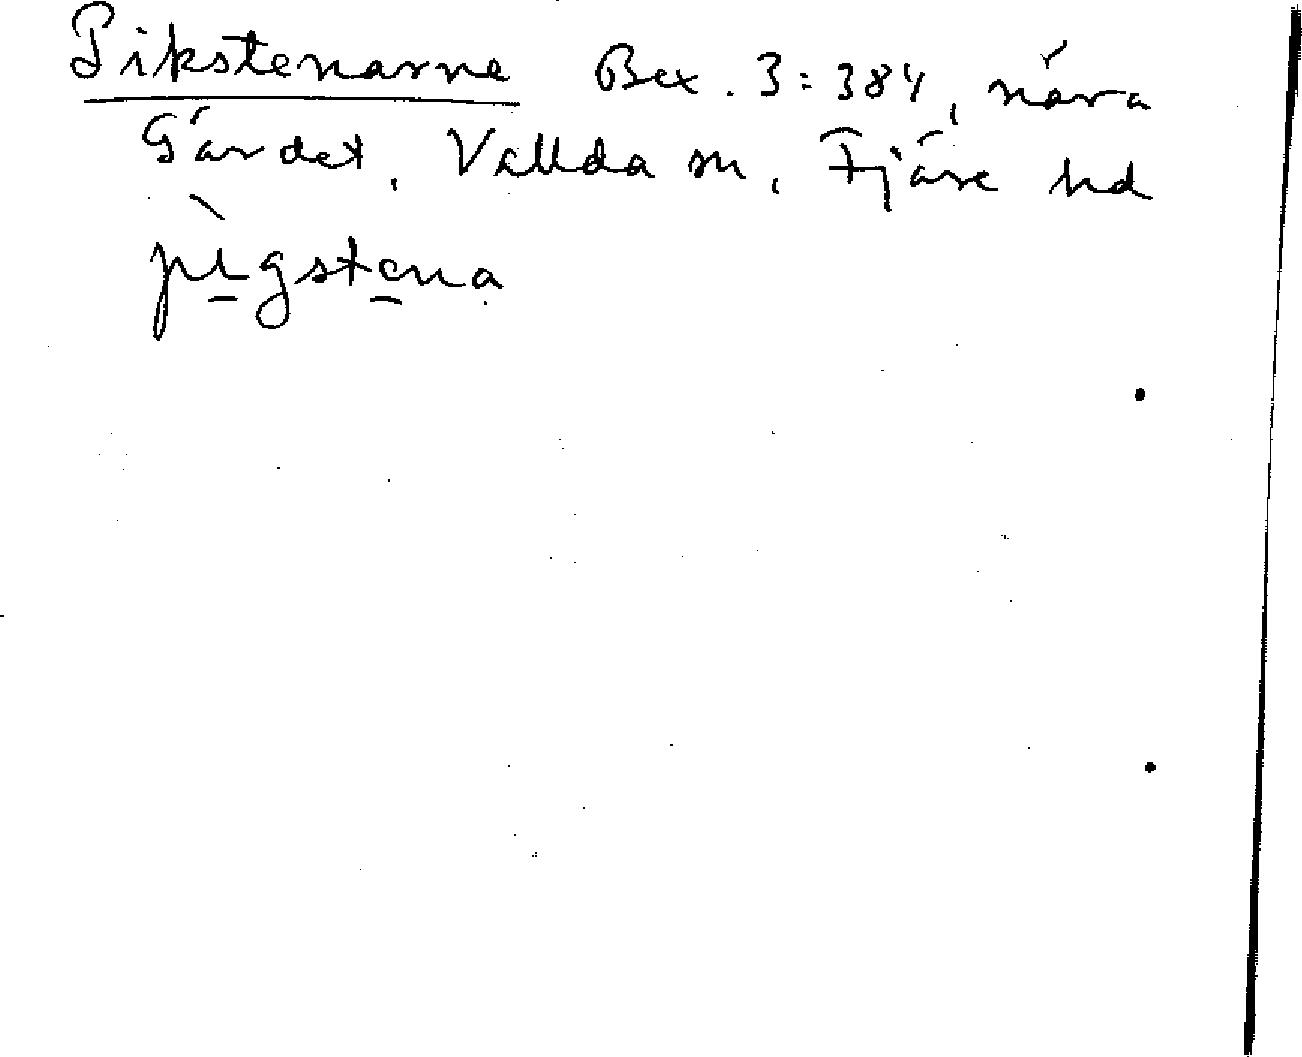 Pikstenarne Bex. 3:384, nära
Gärdet, Vallda sn, Fjäre hd
pìgstena